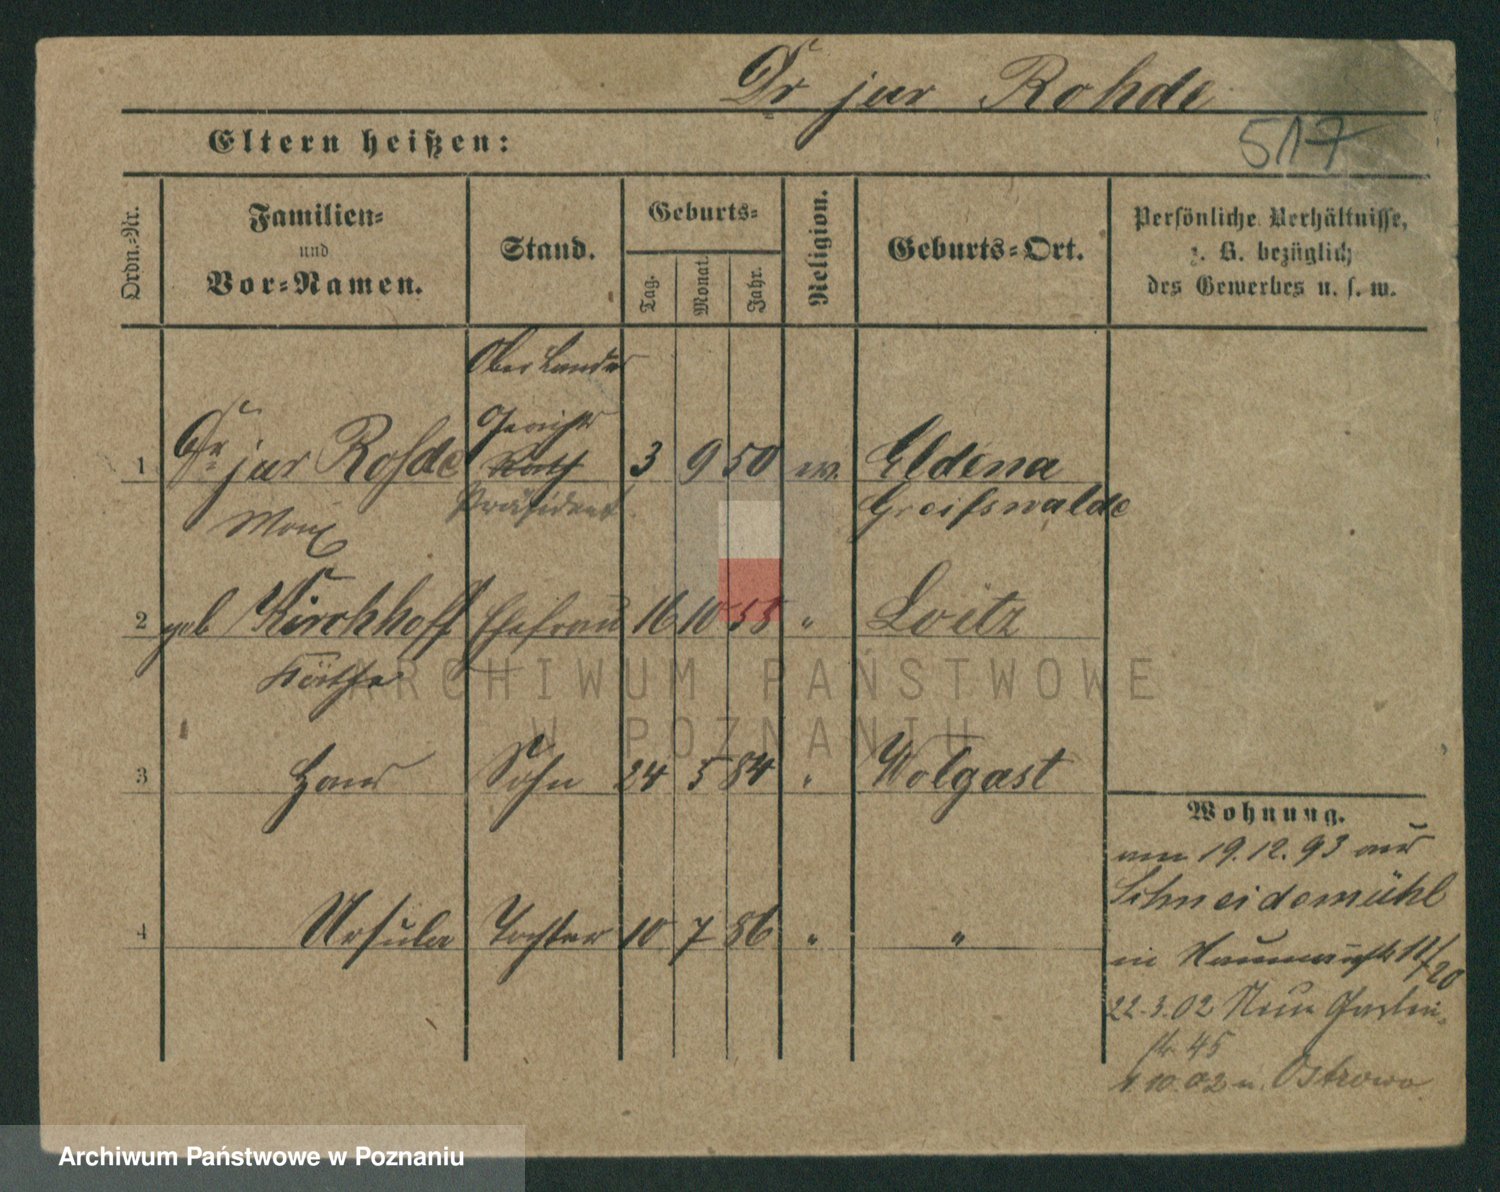 Dr jur Rohde
517
Eltern heißen:
Ordn.-Nr.
Familien-
und
Vor-Namen.
Stand.
Geburts-
Tag.
Monat.
Jahr.
Religion.
Geburts-Ort.
Persönliche Verhältnisse,
z. B. bezüglich
des Gewerbes u. s. w.
Ober Landes
Gerichts
1 Dr jur Rohde Rath 3 9 50 ev. Eldena
Max Präsident. Greifswalde
2 geb Kirchhoff Ehefrau 16 10 55 " Loitz
Käthe
3 Hans Sohn 24 5 84 " Wolgast
4 Ursula Tochter 10 7 86 " "
Wohnung.
am 19.12.93 aus
Schneidemühl
in 11/20
22.3.02 Neue Garten
str. 45
1.10.02 n. Ostrowo
ARCHIWUM PAŃSTWOWE
W POZNANIU
Archiwum Państwowe w Poznaniu